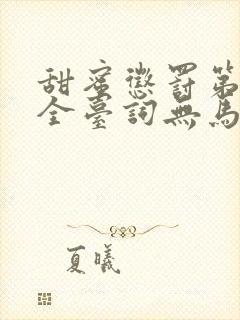 甜蜜懲罰第
全臺詞無馬
夏曦